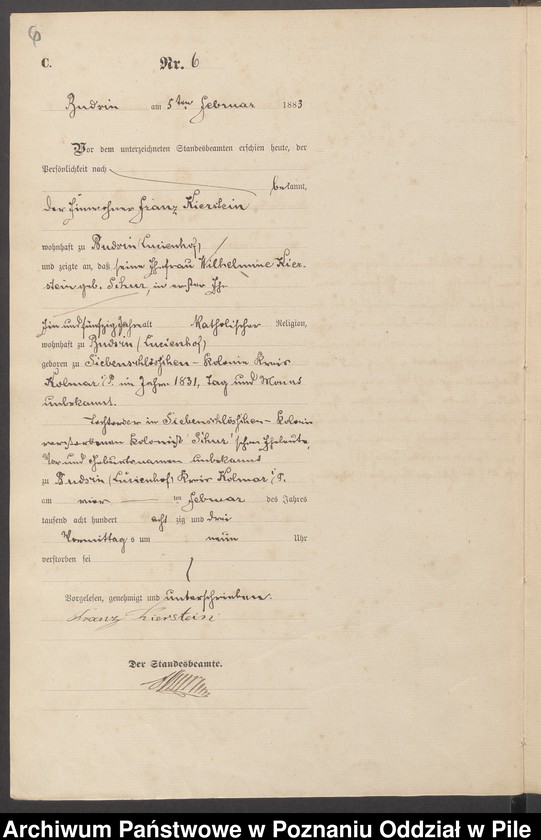 6
C. Nr. 6
Budsin am 5ten Februar 1883
Vor dem unterzeichneten Standesbeamten erschien heute, der
Persönlichkeit nach
bekannt,
der Einwohner Franz Kierstein
wohnhaft zu Budsin (Lucienhof)
und zeigte an, daß seine Ehefrau Wilhelmine Kier-
stein geb. Schur, in erster Ehe
Ein und fünfzig Jahre alt Katholischer Religion,
wohnhaft zu Budsin (Lucienhof)
geboren zu Siebenschlößchen-Kolonie Kreis
Kolmar i/P. im Jahre 1831, Tag und Monat
unbekannt.
Tochter der in Siebenschlößchen-Kolonie
verstorbenen Kolonist Schur'schen Eheleute,
Vor und Geburtsnamen unbekannt
zu Budsin (Lucienhof) Kreis Kolmar i/P.
am vier ten Februar des Jahres
tausend acht hundert acht zig und drei
Vormittags um neun Uhr
verstorben sei
Vorgelesen, genehmigt und unterschrieben.
Franz Kierstein
Der Standesbeamte.
Archiwum Państwowe w Poznaniu Oddział w Pile